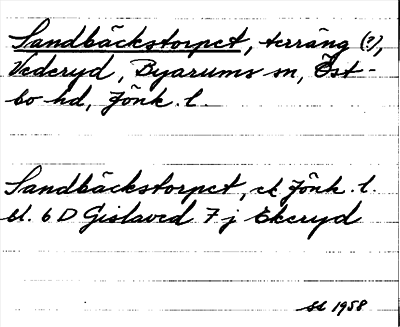 Sandbäckstorpet, terräng (?),
Vederyd, Byarums sn, Öst-
bo hd, Jönk. l.
Sandbäckstorpet, ek Jönk. l.
bl. 6 D Gislaved 7 j Ekeryd
1958